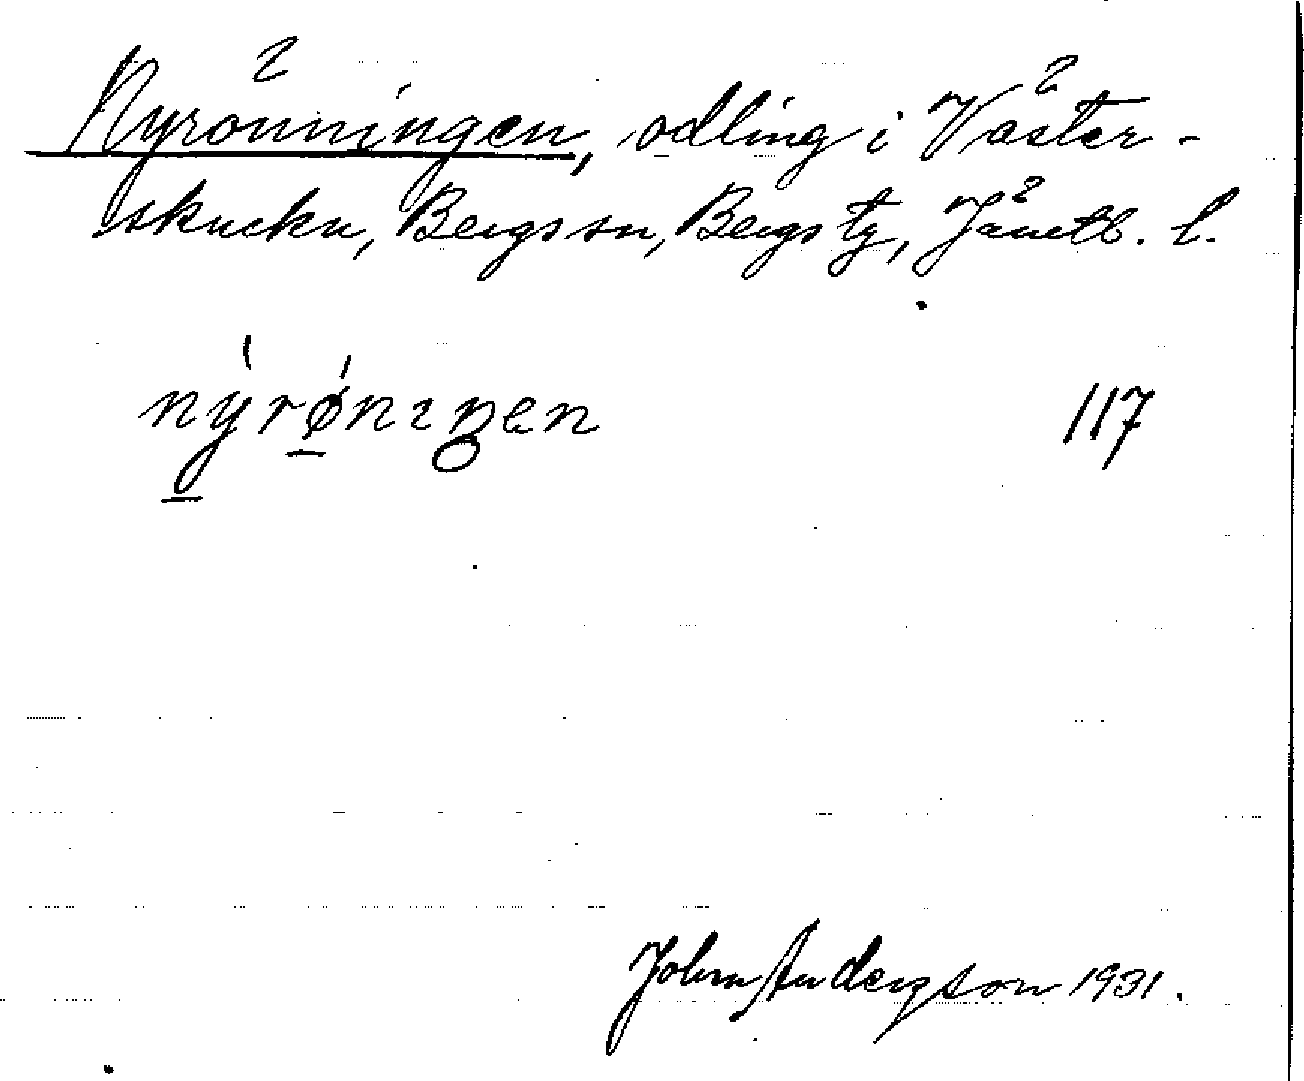 Nyrönningen, odling i Väster-
skucku, Bergs sn, Bergs tg, Jämtl. l.
nyrøniŋen 117
John Anderson 1931.